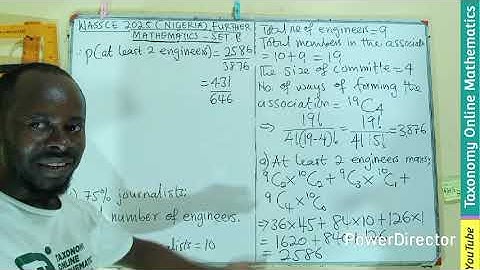 WASSCE 2025 (NIGERIA) FURTHER
MATHEMATICS - SET B
∴ p(at least 2 engineers) = 2586/3876
= 431/646
75% journalists:
number of engineers.
= 10
Total no of engineers = 9
Total members in the associat
= 10 + 9 = 19
The size of committe = 4
No. of ways of forming the
association = ¹⁹C₄
⇒ 19!/4!(19-4)! = 19!/4!15! = 3876
a) At least 2 engineers means,
⁹C₂ × ¹⁰C₂ + ⁹C₃ × ¹⁰C₁ +
⁹C₄ × ¹⁰C₀
⇒ 36 × 45 + 84 × 10 + 126 × 1
= 1620 + 840 + 126
= 2586
PowerDirector
TAXONOMY
ONLINE
MATHEMATIC
YouTube
Taxonomy Online Mathematics